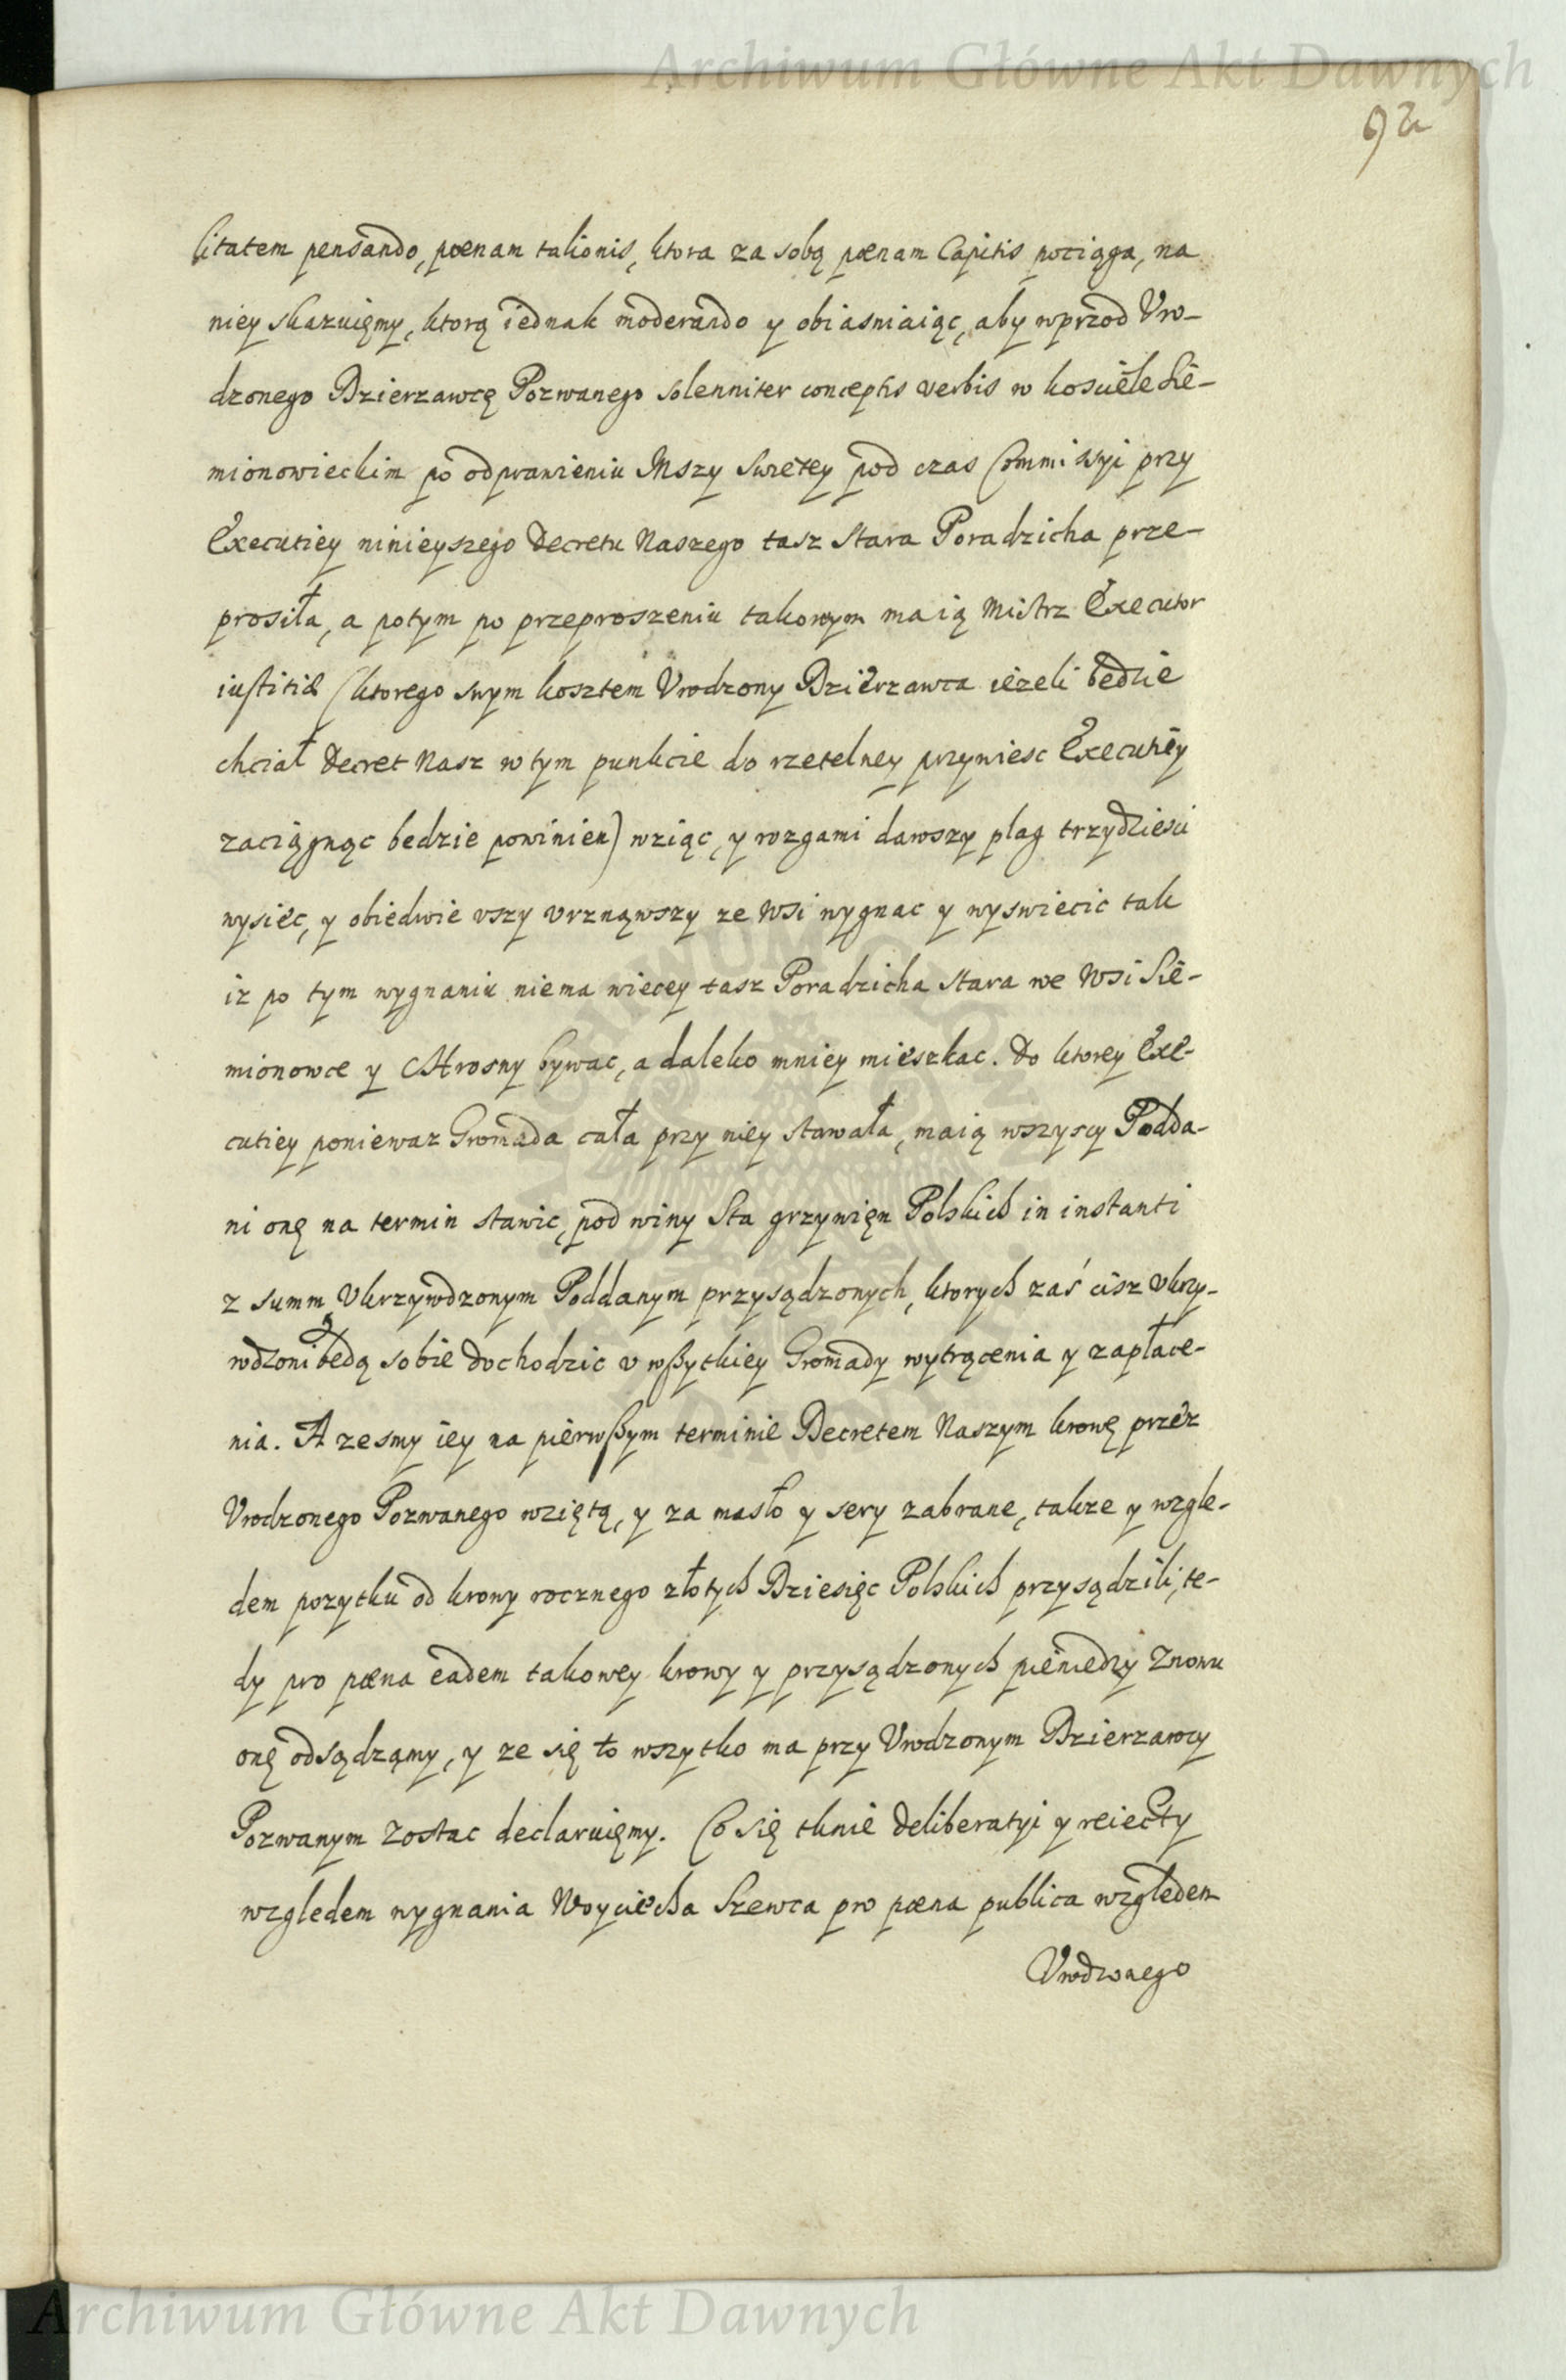 Archiwum Główne Akt Dawnych
92
litatem pensando, pœnam talionis, ktora za sobą pœnam Capitis pociąga, na
niey skazuięmy, ktorą iednak moderando y obiasniaiąc, aby wprzod Vro-
dzonego Dzierzawcę Pozwanego solenniter conceptis verbis w kosciele Sie-
mionowieckim po odprawieniu Mszy Swietey pod czas Commissyi przy
Executiey ninieyszego Decretu Naszego tasz stara Poradzicha prze-
prosiła, a potym po przeproszeniu takowym maią Mistrz Executor
iustitiæ (ktorego swym kosztem Vrodzony Dzierzawca iezeli bedzie
chciał Decret Nasz w tym punkcie do rzetelney przywiesc Executiey
zaciągnąc bedzie powinien) wziąc, y rozgami dawszy plag trzydziesci
wysiec, y obiedwie vszy vrznąwszy ze Wsi wygnac y wyswiecic tak
iz po tym wygnaniu niema wiecey tasz Poradzicha stara we Wsi Sie-
mionowce y CHrosny bywac, a daleko mniey mieszkac. Do ktorey Exe-
cutiey poniewaz Gromada cała przy niey stawała, maią wszyscy Podda-
ni onę na termin stawic, pod winy Sta grzywięn Polskich in instanti
z summ Vkrzywdzonym Poddanym przysądzonych, ktorych zaś cisz vkrzy-
wdzoni bedą sobie dochodzic v wszytkiey Gromady wytrącenia y zapłace-
nia. A zesmy iey na pierwszym terminie Decretem Naszym krowę przez
Vrodzonego Pozwanego wziętą, y za masło y sery zabrane, takze y wzgle-
dem pozytku od krowy rocznego złotych Dziesięc Polskich przysądzili, te-
dy pro pœna eadem takowey krowy y przysądzonych pieniedzy Znowu
onę odsądzamy, y ze się to wszytko ma przy Vrodzonym Dzierzawcy
Pozwanym zostac declaruięmy. Co się tknie deliberatyi y reiecty
względem wygnania Woyciecha Szewca pro pœna publica względem
Vrodzonego
Archiwum Główne Akt Dawnych